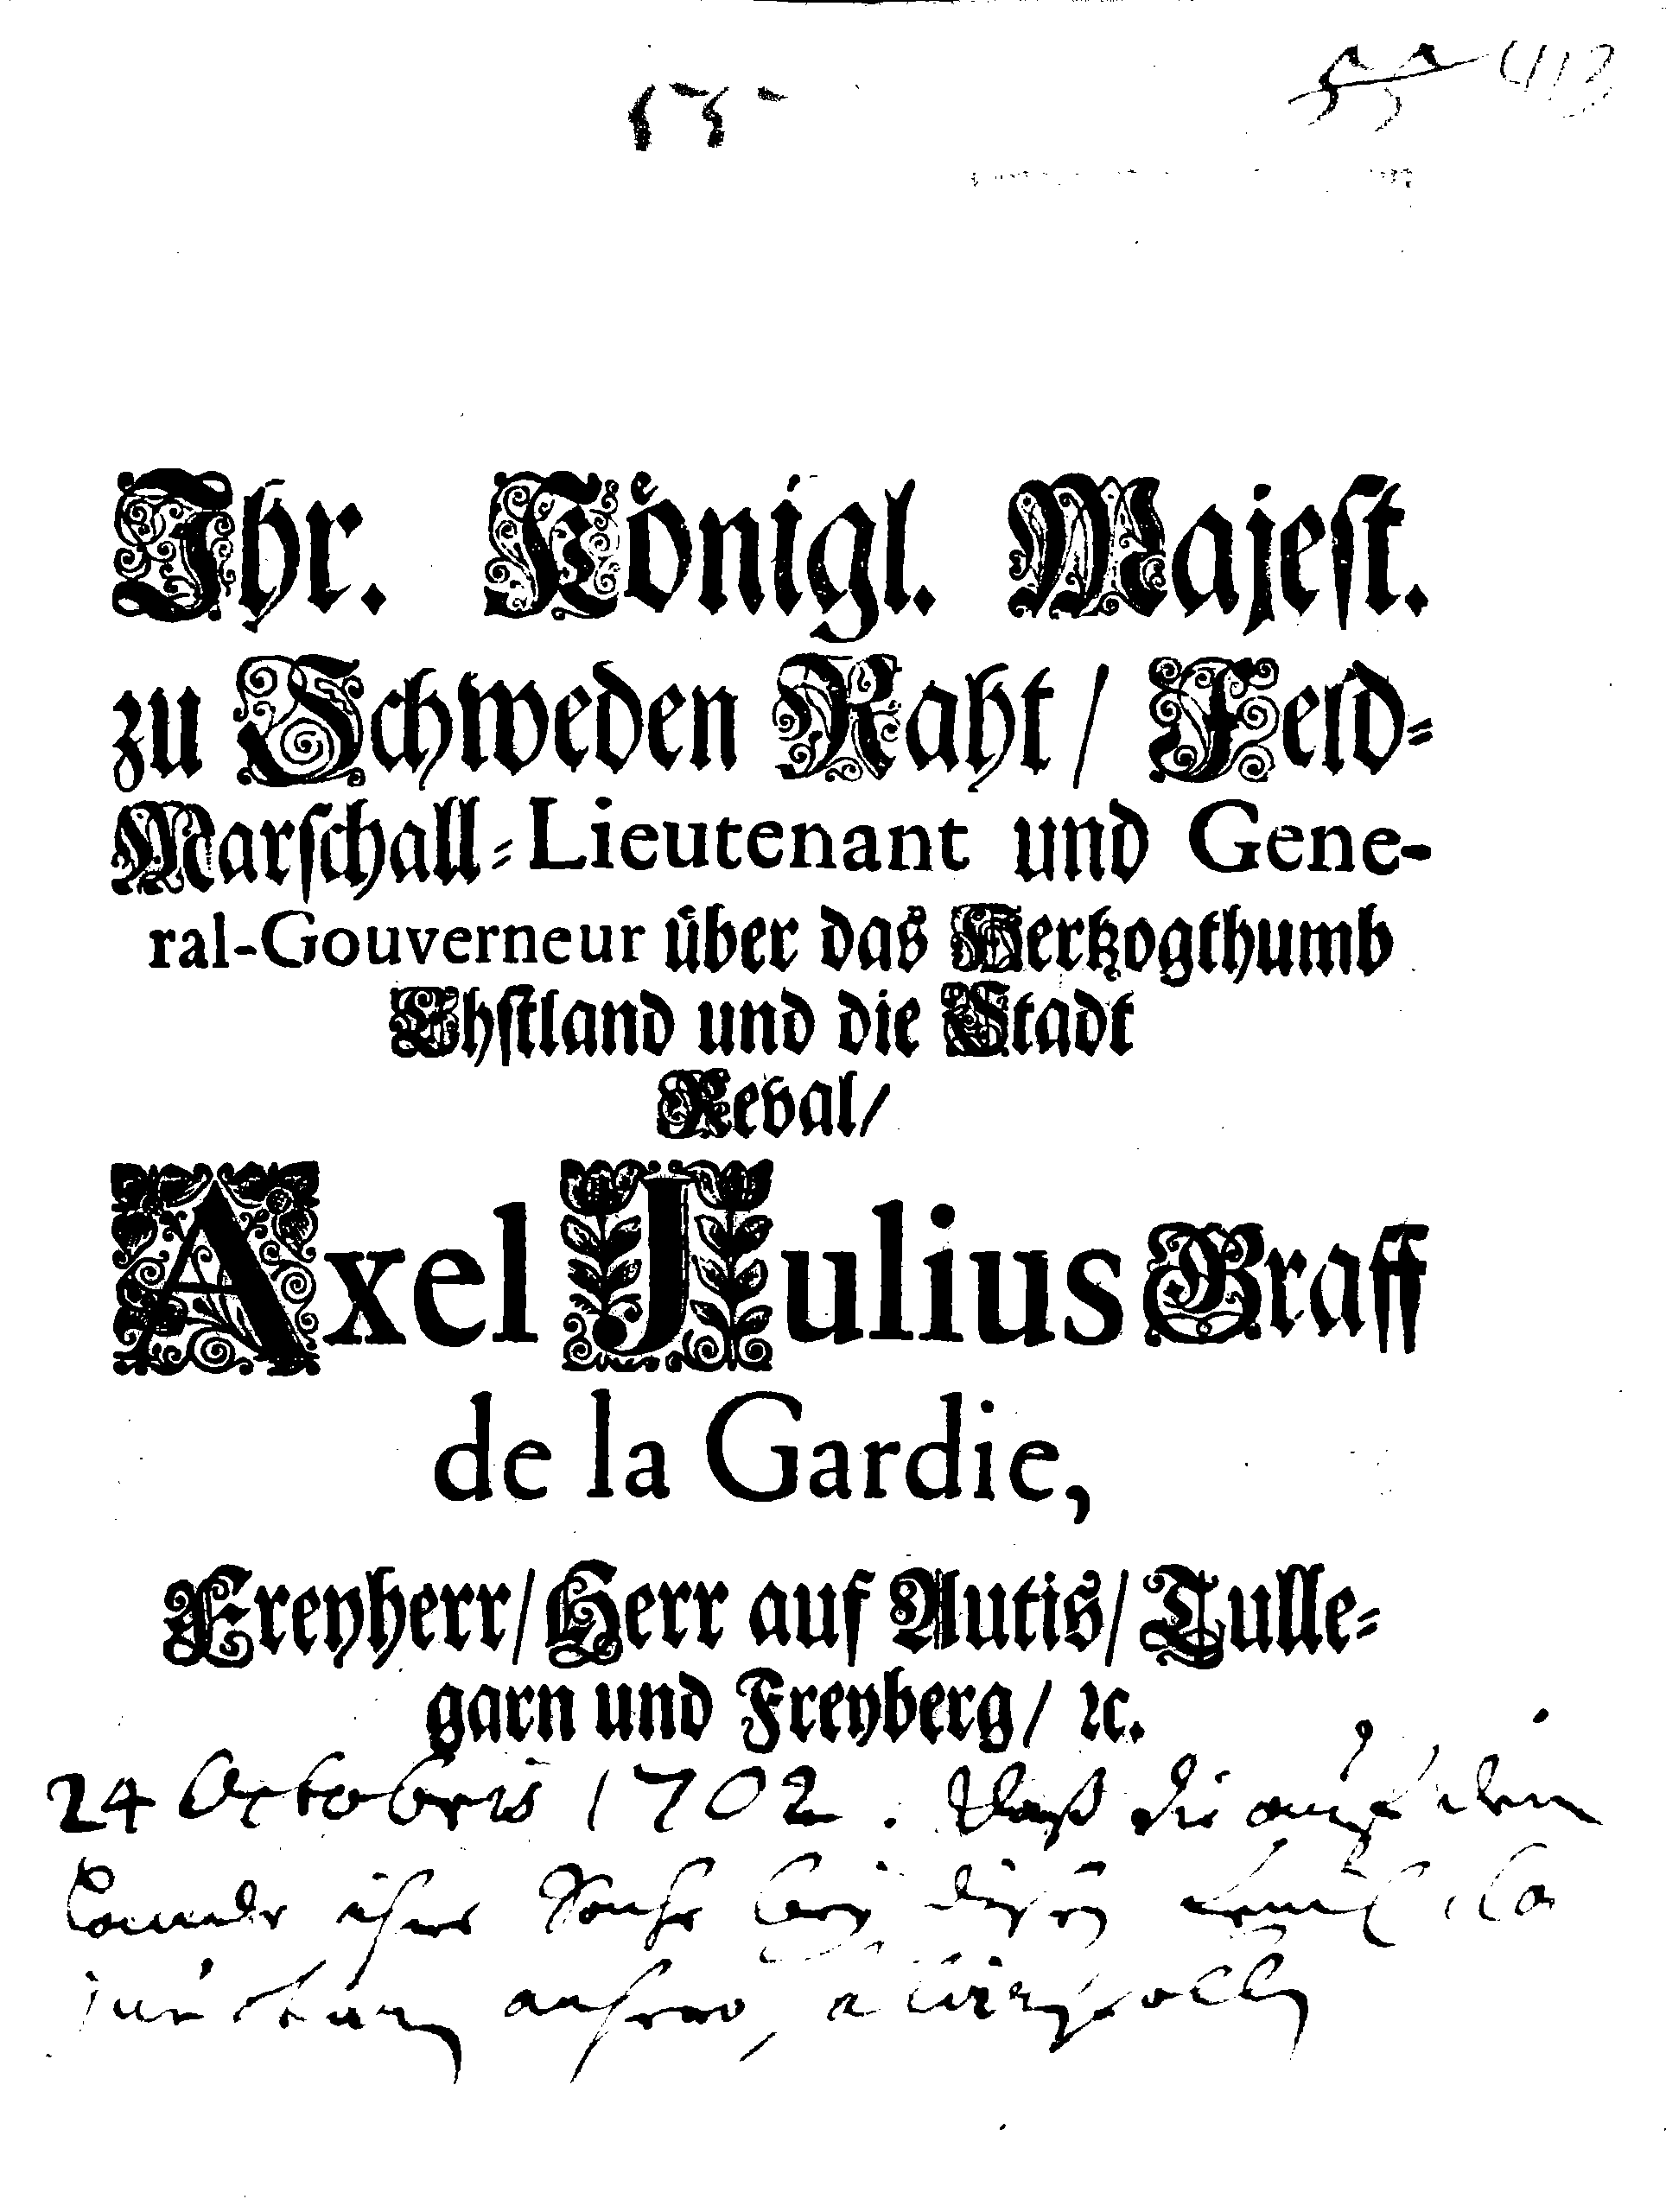 55 55 413
Ihr. Königl. Majest.
zu Schweden Raht / Feld-
Marschall-Lieutenant und Gene-
ral-Gouverneur über das Hertzogthumb
Ehstland und die Stadt
Reval/
Axel Julius Graff
de la Gardie,
Freyherr/ Herr auf Autis/ Tulle-
garn und Freyberg/ ꝛc.
24 Octobris 1702. Daß die auf dem
Lande ihre